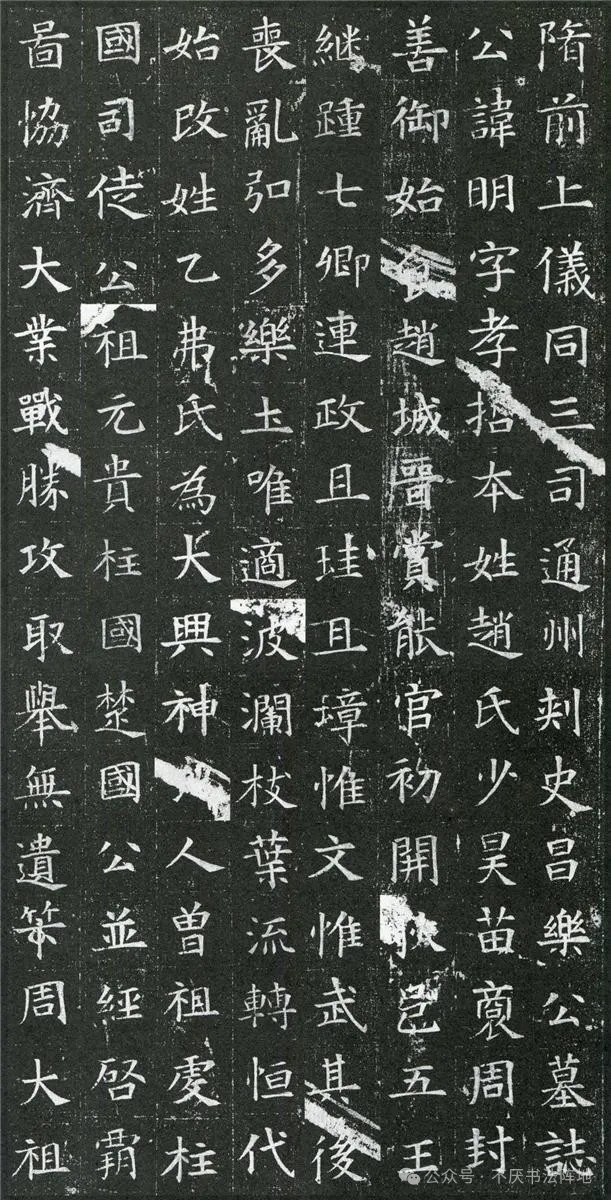 隋前上儀同三司通州刾史昌樂公墓誌
公諱明字孝招本姓趙氏少昊苗裔周封
善御始食趙城晉賞能官初開耿邑五王
継踵七卿連政且珪且璋惟文惟武其後
喪亂弘多樂土唯適波瀾枝葉流轉恒代
始改姓乙弗氏為大興神人曾祖虔柱
國司徒公祖元貴柱國楚國公並經啓霸
啚協濟大業戰勝攻取舉無遺筞周大祖
公众号 · 不厌书法阵地